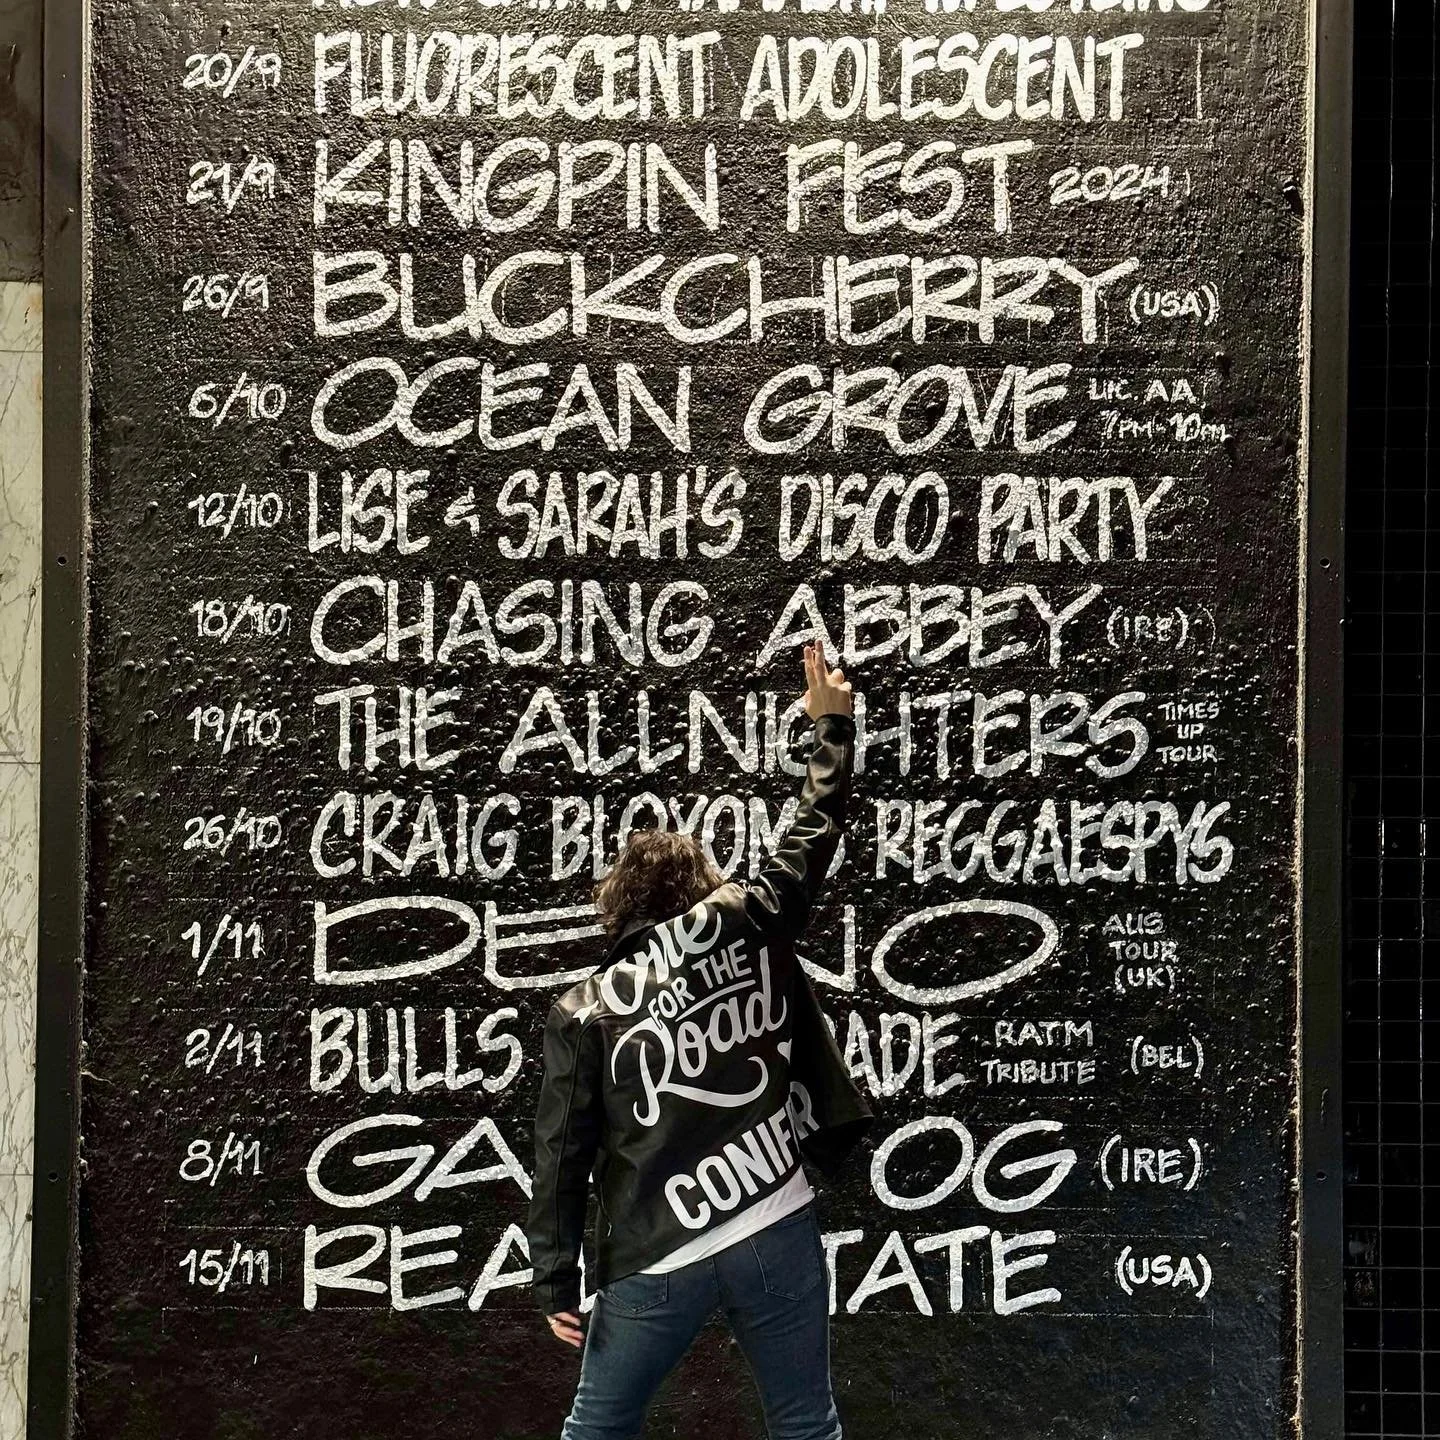 20/9 FLUORESCENT ADOLESCENT
21/9 KINGPIN FEST 2024
26/9 BUCKCHERRY (USA)
6/10 OCEAN GROVE LIC. A/A
7PM-10PM
12/10 LISE & SARAH'S DISCO PARTY
18/10 CHASING ABBEY (IRE)
19/10 THE ALLNIGHTERS TIMES
UP
TOUR
26/10 CRAIG REGGAESPYS
1/11 AUS
TOUR
(UK)
2/11 BULLS RATM
TRIBUTE (BEL)
8/11 OG (IRE)
15/11 (USA)
One
FOR THE
Road
CONIFER